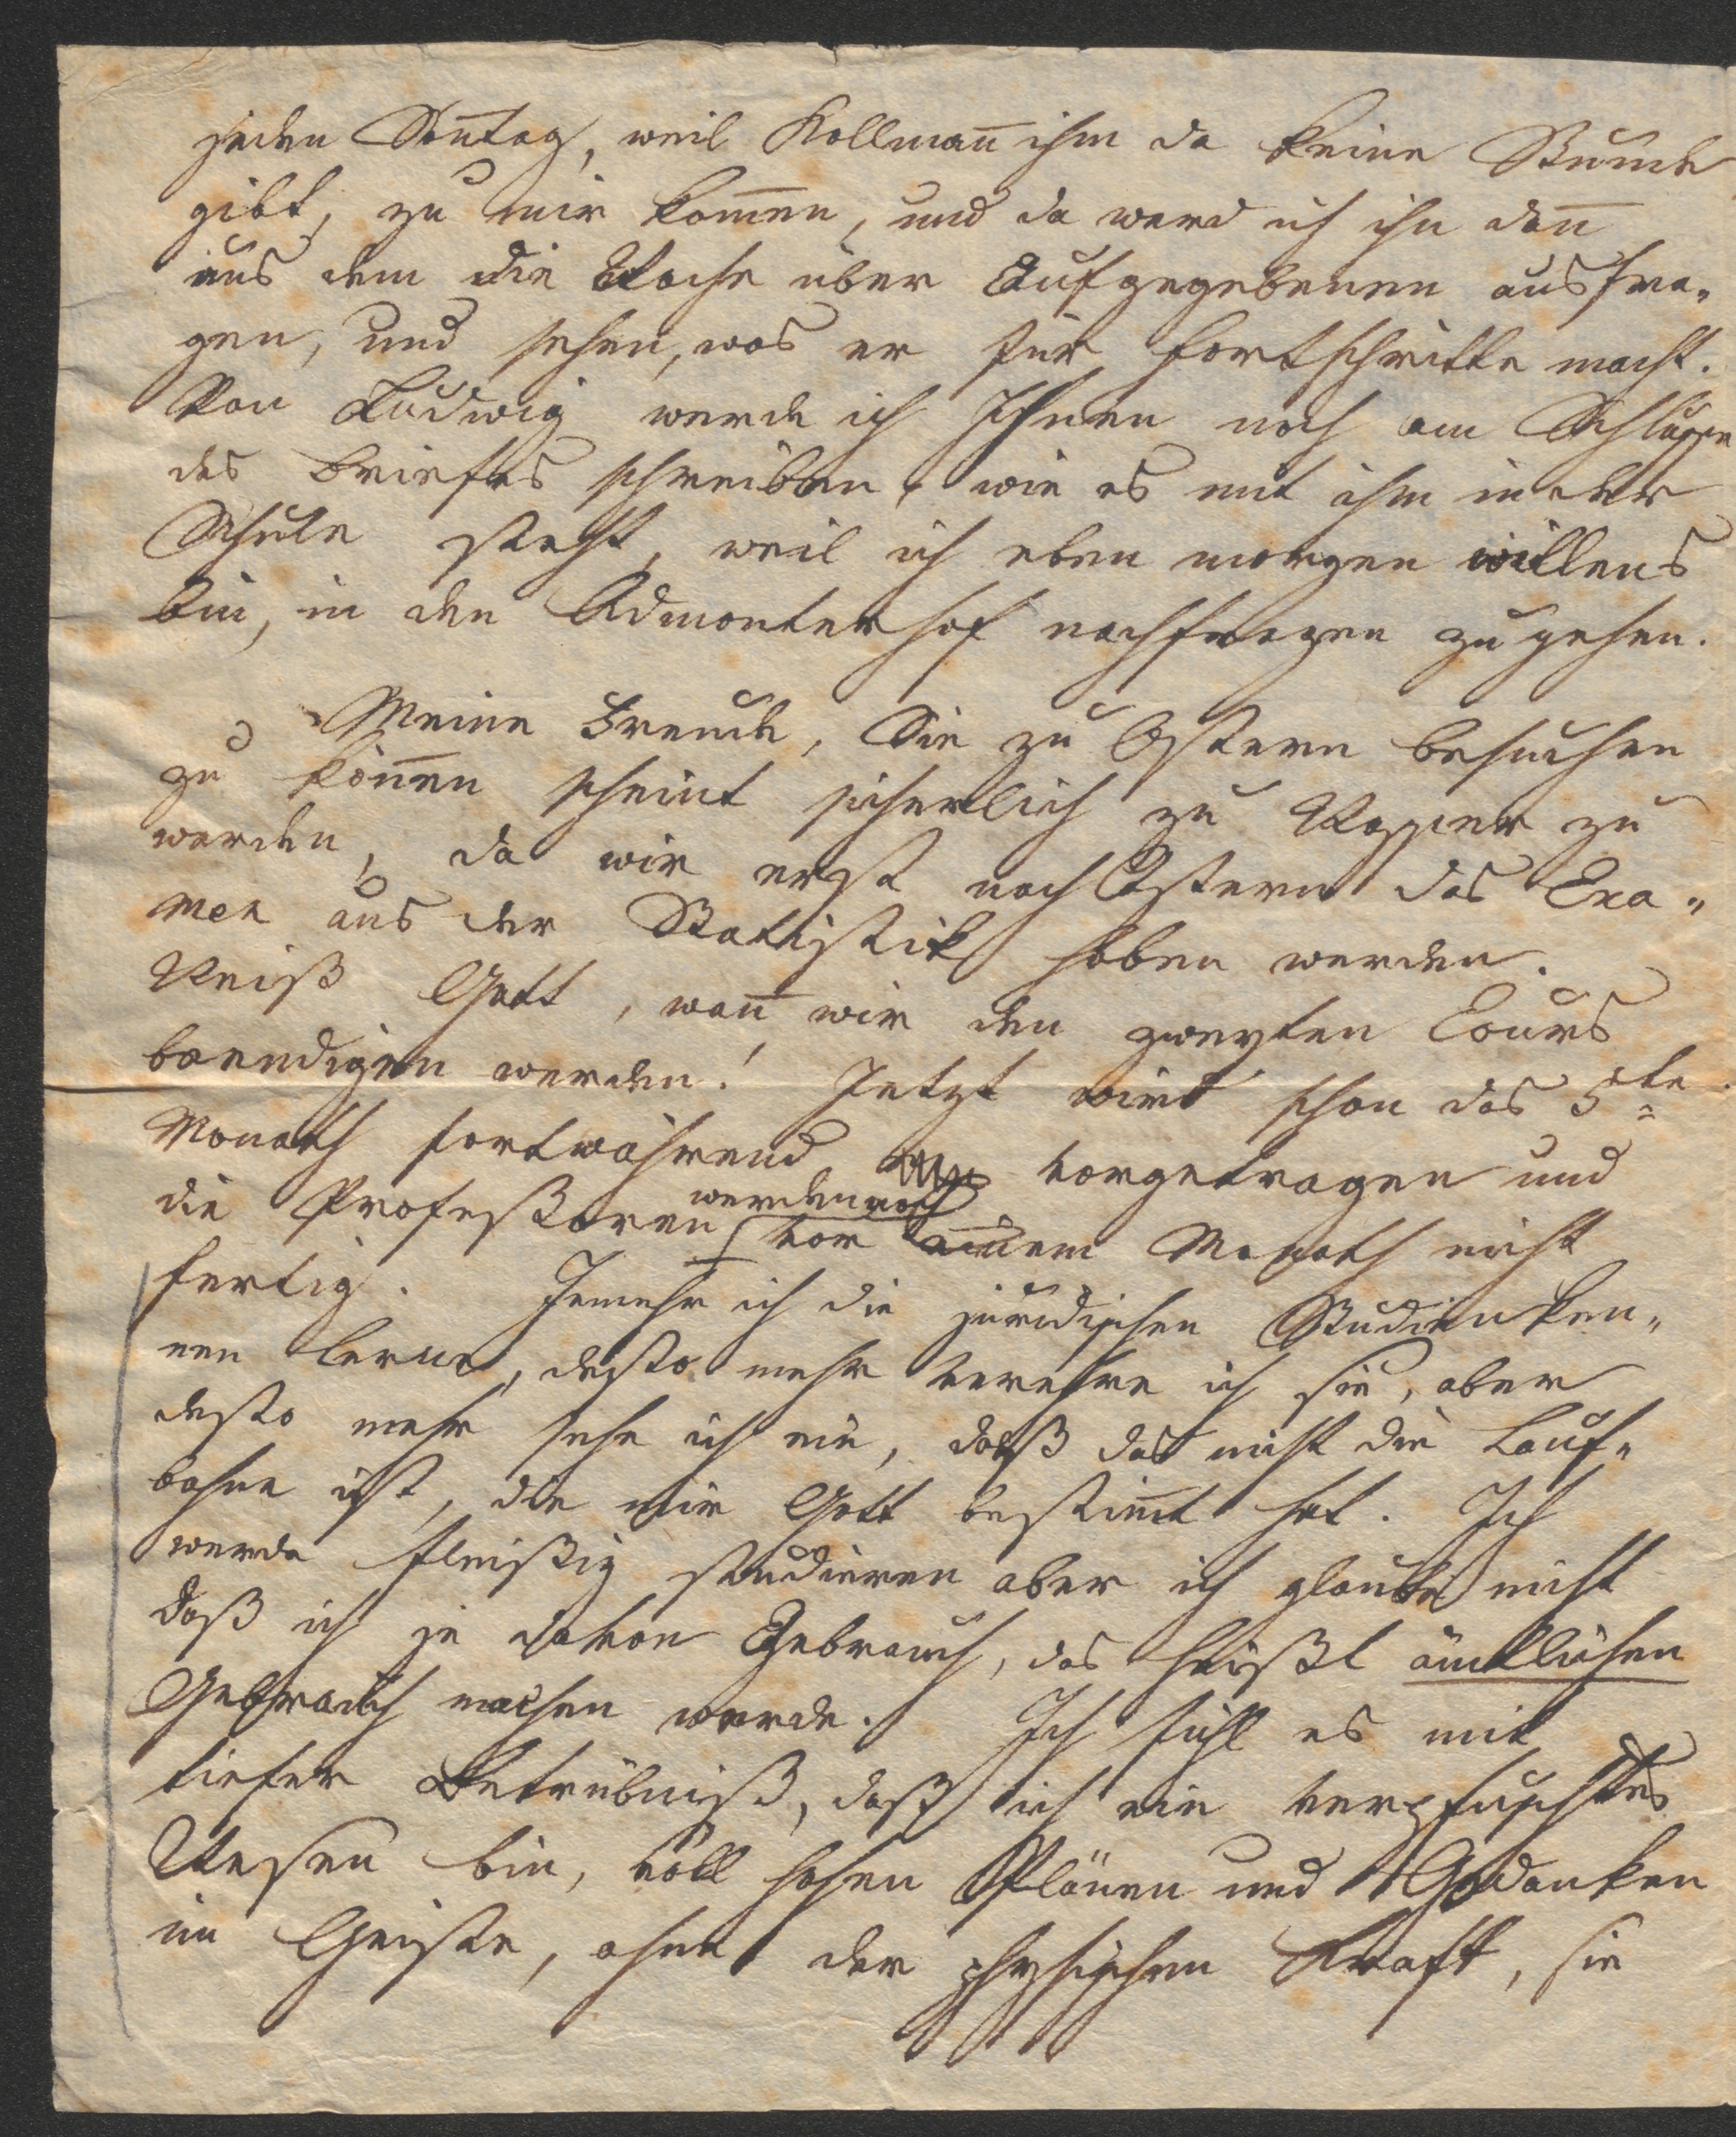 jeden Son̄tag, weil Kollman̄ ihm da keine Stunde
gibt, zu mir kom̄en, und da werd ich ihn dan̄
aus dem die Woche über Aufgegebenen ausfra„
gen, und sehen, was er für Fortschritte macht.
Von Ludwig werde ich Ihnen noch am Schlusse
des Briefes schreiben, wie es mit ihm in der
Schule steht, weil ich eben morgen willens
bin, in den Admonterhof nachfragen zu gehen.
Meine Freude, Sie zu Ostern besuchen
zu kön̄en scheint sicherlich zu Wasser zu
werden, da wir erst nach Ostern das Exa„
men aus der Statistik haben werden.
Weiß Gott, wan̄ wir den zweyten Cours
beendigen werden! Jetzt wird schon das 5te
Monath fortwährend vorgetragen und
die Profeßoren werden noch vor einem Monath nicht
fertig. Jemehr ich die juridischen Studien ken„
nen lerne, desto mehr verehre ich sie, aber
desto mehr sehe ich ein, daß das nicht die Lauf„
bahne ist, die mir Gott bestim̄t hat. Ich
werde fleißig studieren aber ich glaube nicht
daß ich je davon Gebrauch, das heißt ämtlichen
Gebrauch machen werde. Ich fühl es mit
tiefer Betrübniß, daß ich ein verpfuschtes
Wesen bin, voll hohen Plänen und Gedanken
im Geiste, ohne der physischen Kraft, sie